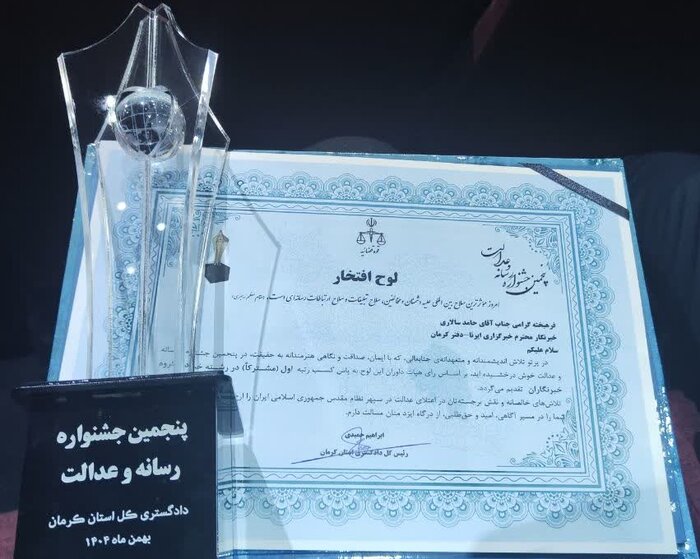 قوه قضائیه
پنجمین جشنواره رسانه و عدالت
لوح افتخار
امروز موثرترین سلاح بین المللی علیه دشمنان و مخالفین، سلاح تبلیغات و سلاح ارتباطات رسانه‌ای است.
فرهیخته گرامی جناب آقای حامد سالاری
خبرنگار محترم خبرگزاری ایرنا-دفتر کرمان
سلام علیکم
در پرتو تلاش اندیشمندانه و متعهدانه‌ی جنابعالی، که با ایمان، صداقت و نگاهی هنرمندانه به حقیقت، در پنجمین جشنواره رسانه
و عدالت خوش درخشیده اید، بر اساس رای هیات داوران این لوح به پاس کسب رتبه اول (مشترکاً) در رشته گروه
خبرنگاران تقدیم می‌گردد.
تلاش‌های خالصانه و نقش برجسته‌تان در اعتلای عدالت در سپهر نظام مقدس جمهوری اسلامی ایران را
شما را در مسیر آگاهی، امید و حق‌طلبی، از درگاه ایزد منان مسالت دارم.
ابراهیم حمیدی
رئیس کل دادگستری استان کرمان
پنجمین جشنواره
رسانه و عدالت
دادگستری کل استان کرمان
بهمن ماه ۱۴۰۴